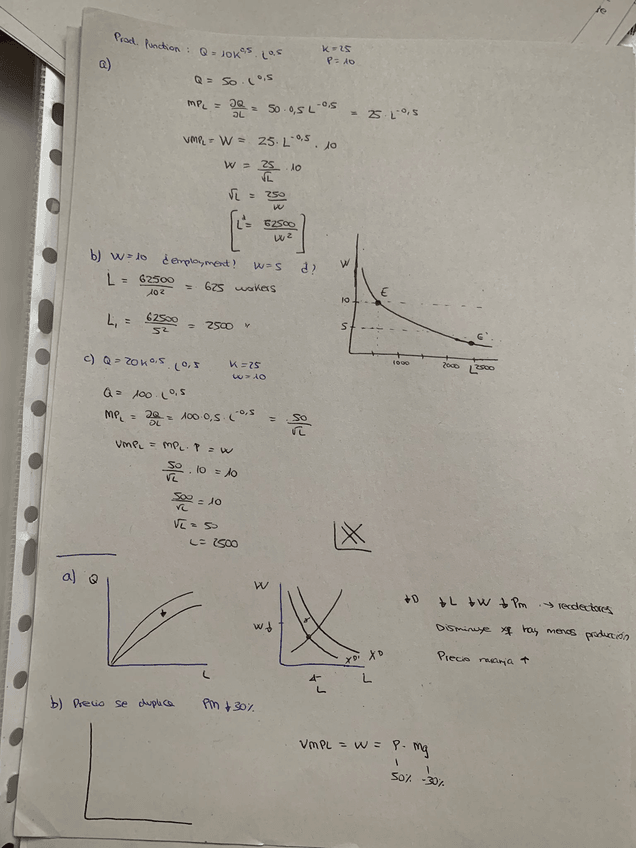 Prod. function: Q = 10K^0,5 · L^0,5    K=25
P=10
a)
Q = 50 · L^0,5
MPL = ∂Q/∂L = 50 · 0,5 L^-0,5 = 25 · L^-0,5
VMPL = W = 25 · L^-0,5 · 10
W = 25/√L · 10
√L = 250/W
[L^d = 62500/W²]
b) W=10 ¿employment? W=5 ¿?
L = 62500/10² = 625 workers
L₁ = 62500/5² = 2500 "
W
10
E
5
E'
1000 2000 2500
L
c) Q = 20K^0,5 · L^0,5    K=25
W=10
Q = 100 · L^0,5
MPL = ∂Q/∂L = 100 · 0,5 · L^-0,5 = 50/√L
VMPL = MPL · P = W
50/√L · 10 = 10
500/√L = 10
√L = 50
L = 2500
a) Q
L
W
W↓
XD' XD
L
L
↓D ↓L ↓W ↓Pm → recolectores
Disminuye xq hay menos producción
Precio ↑
b) Precio se duplica Pm ↓30%
VMPL = W = P · Mg
50% -30%